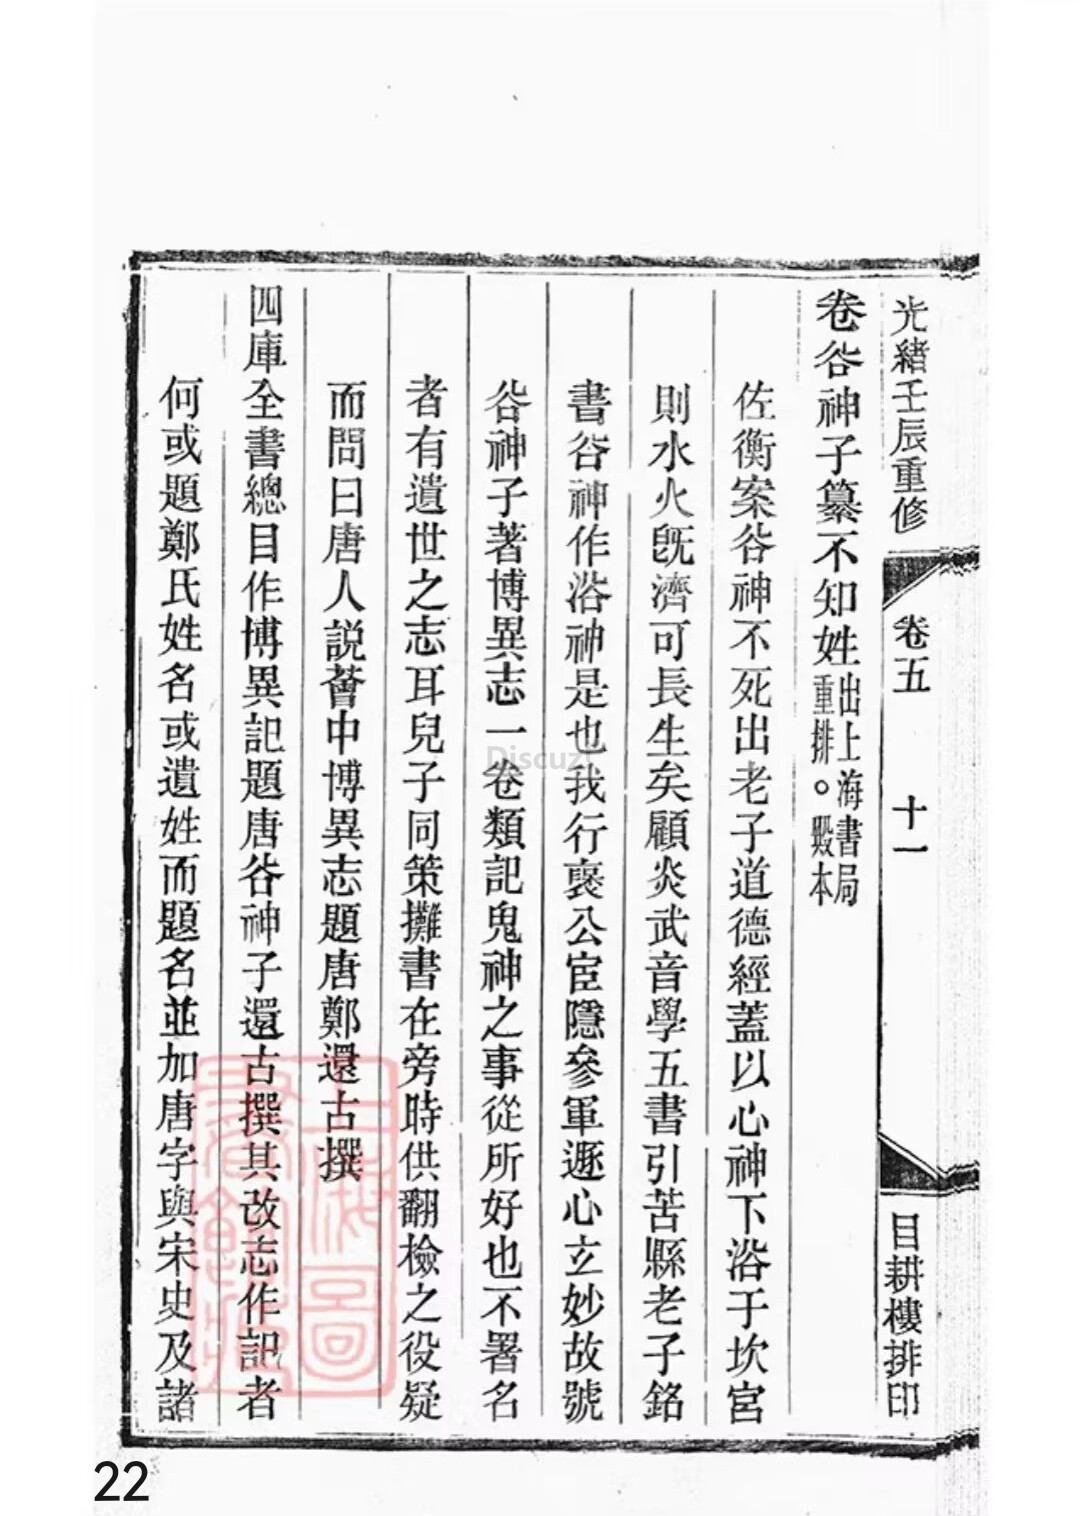 光緒壬辰重修
卷五
十一
目耕樓排印
卷谷神子纂不知姓出上海書局重排。殿本
佐衡案谷神不死出老子道德經蓋以心神下浴于坎宮
則水火旣濟可長生矣顧炎武音學五書引苦縣老子銘
書谷神作浴神是也我行褱公宦隱參軍遯心立妙故號
谷神子著博異志一卷類記鬼神之事從所好也不署名
者有遺世之志耳兒子同策攤書在旁時供翻檢之役疑
而問曰唐人説薈中博異志題唐鄭還古撰
四庫全書總目作博異記題唐谷神子還古撰其改志作記者
何或題鄭氏姓名或遺姓而題名並加唐字與宋史及諸
上海圖
書館藏
Discuz!
22